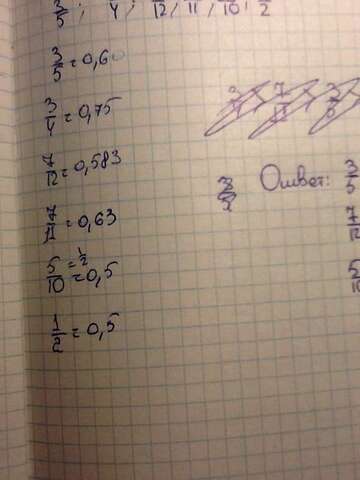 3/5; 4, 12, 11, 10, 2
3/5 = 0,60
3/4 = 0,75
7/12 = 0,583
7/11 = 0,63
5/10 = 1/2 = 0,5
1/2 = 0,5
Ответ: 3/5
7/12
5/10